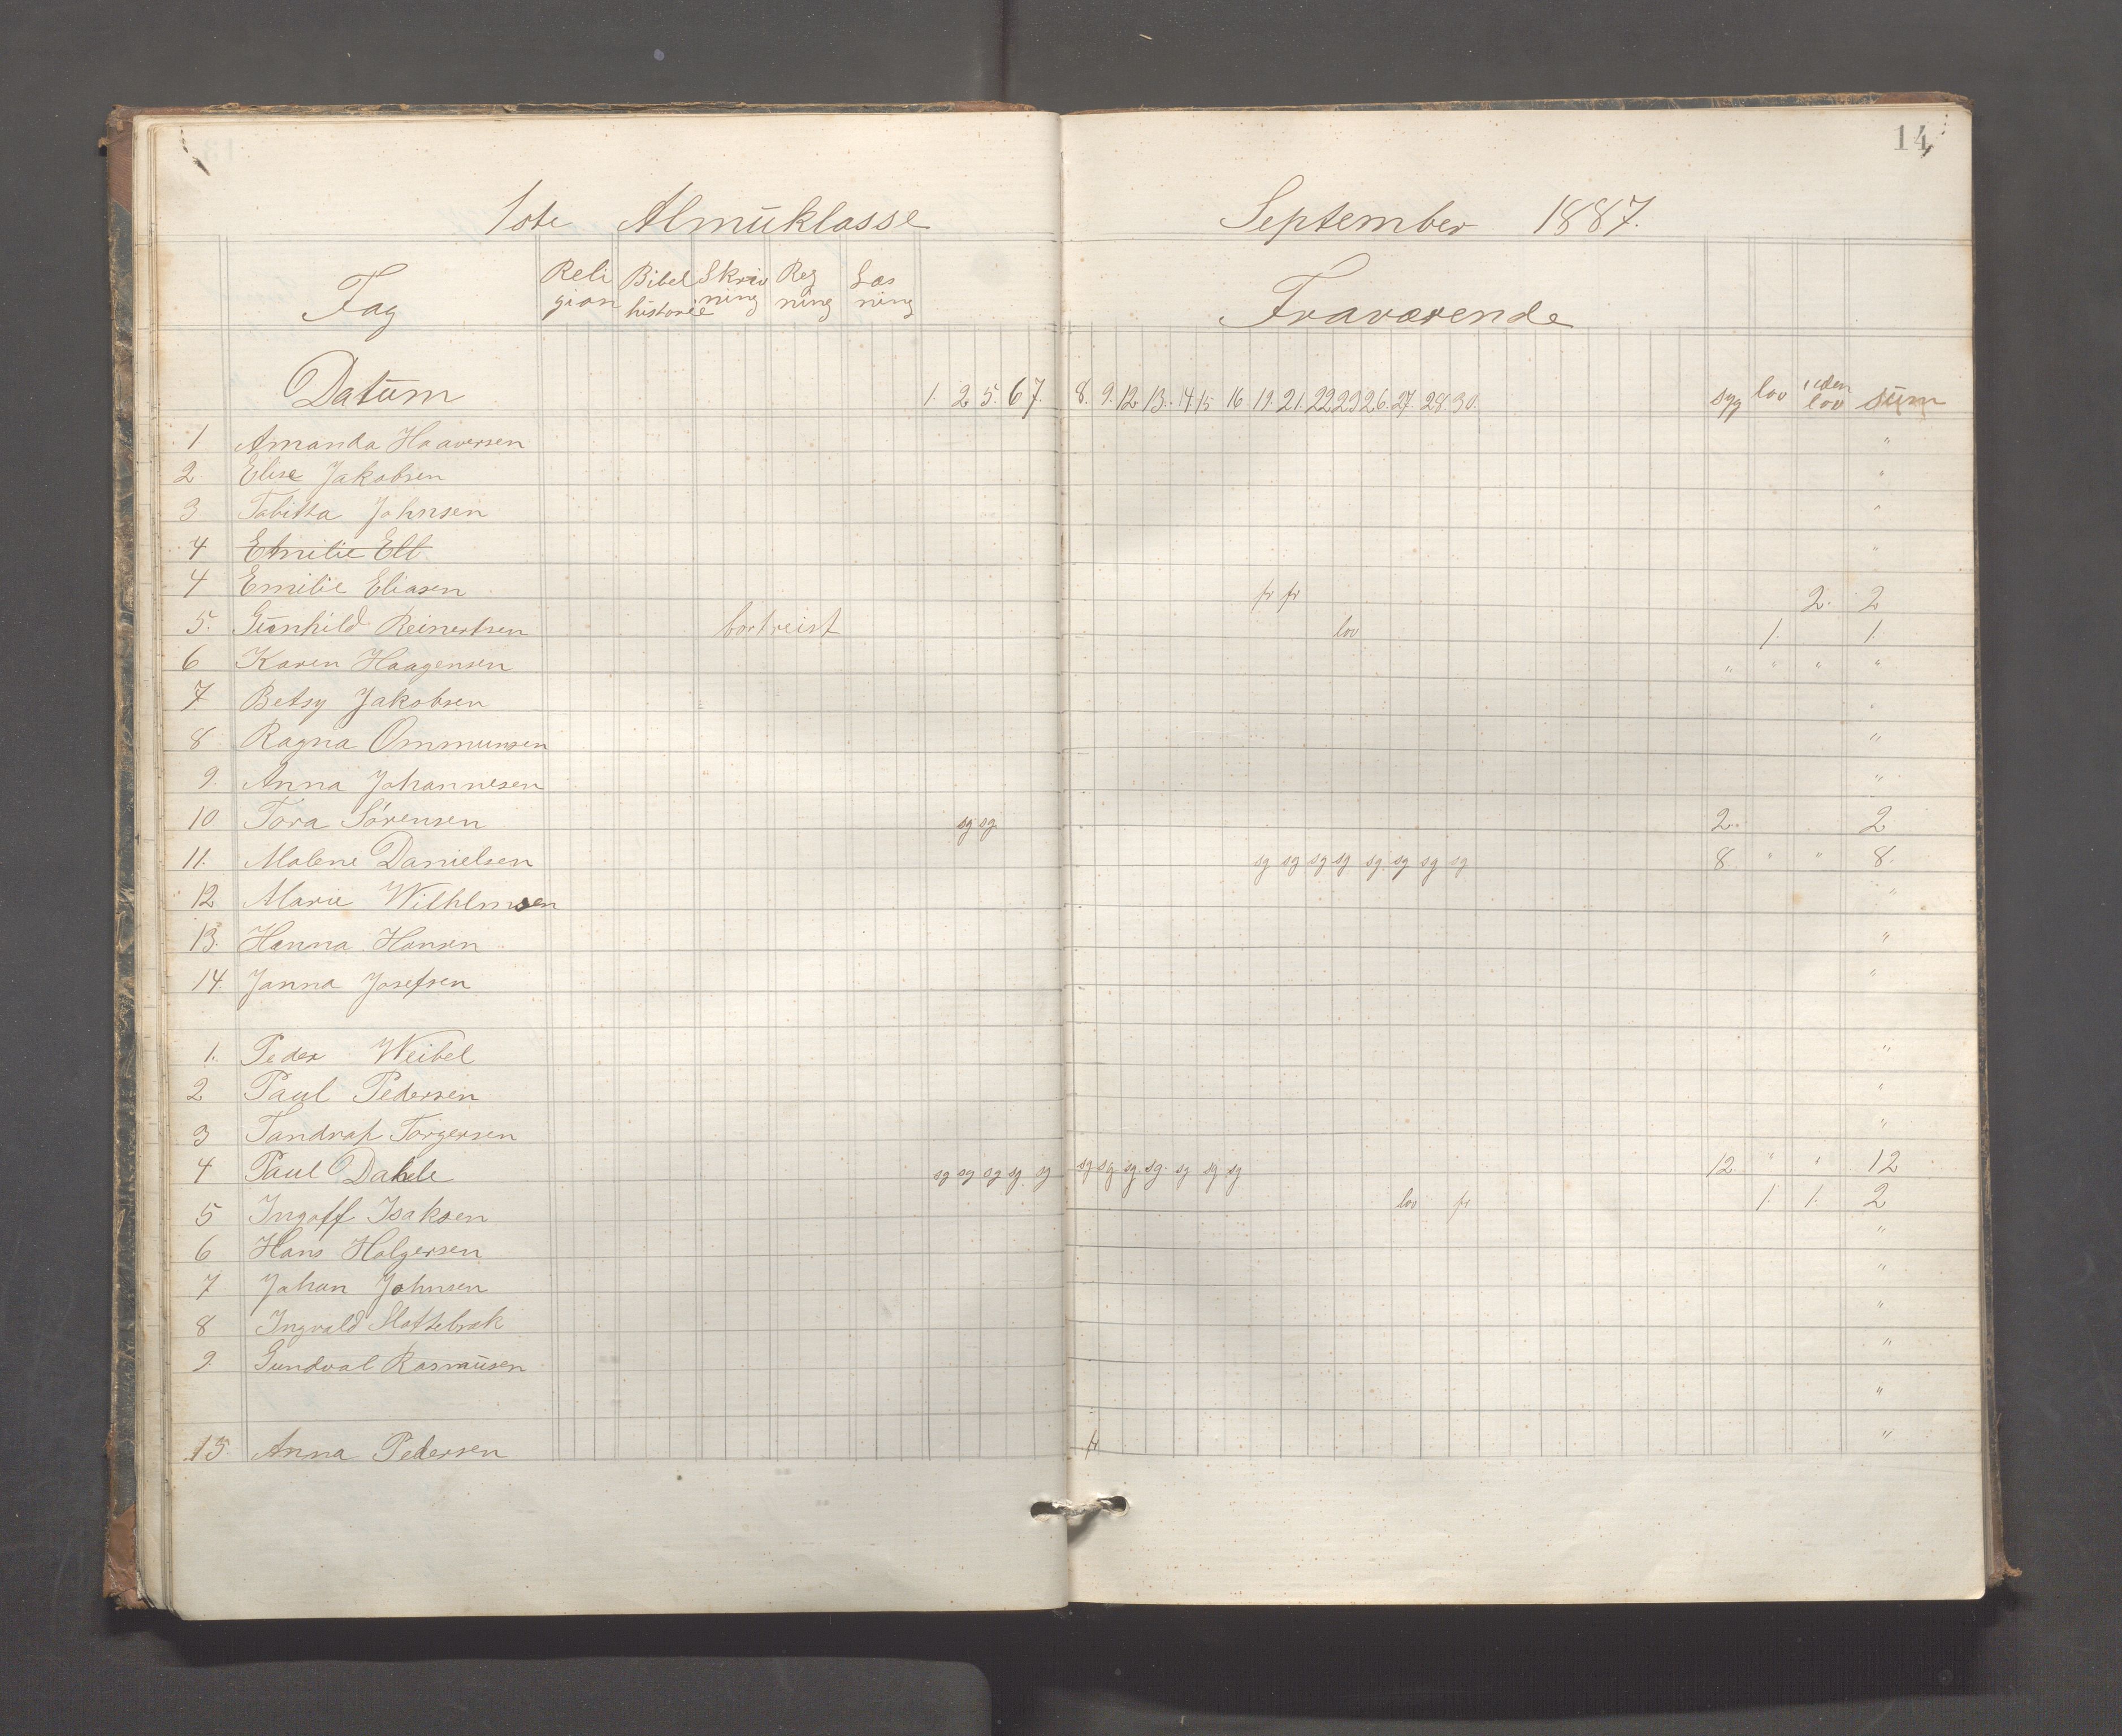 14
1ste Almuklasse September 1887.
Fag Reli gion Bibel historie Skriv ning Reg ning Læs ning Fraværende
Datum 1. 2 5. 6 7. 8. 9. 12 13. 14 15 16 19. 21. 22 23 26. 27. 28. 30. syg lov uden lov sum
1 Amanda Haaversen "
2. Elise Jakobsen "
3. Tabitta Johnsen "
4 Emilie Ell "
4 Emilie Eliasen fr fr 2. 2
5. Gunhild Reinertsen bortreist lov 1. 1.
6 Karen Haagensen " " " "
7 Betsy Jakobsen "
8 Ragna Ommunsen "
9. Anna Johannesen "
10 Tora Sørensen sg sg. 2. 2
11. Malene Danielsen sg sg sg sg sg. sg sg sg 8 " " 8.
12 Marie Wilhlmsen "
13. Hanna Hansen "
14 Janna Josefsen "
1. Peder Weibel "
2 Paul Pedersen "
3 Torgersen "
4 Paul Dahle sg sg sg sg sg sg sg sg. sg. sg sg sg 12. " " 12
5 Ingolf Isaksen lov fr 1. 1. 2
6 Hans Holgersen "
7 Johan Johnsen "
8 Ingvald Slottebrak "
9. Gundval Rasmusen "
"
15 Anna Pedersen fr "